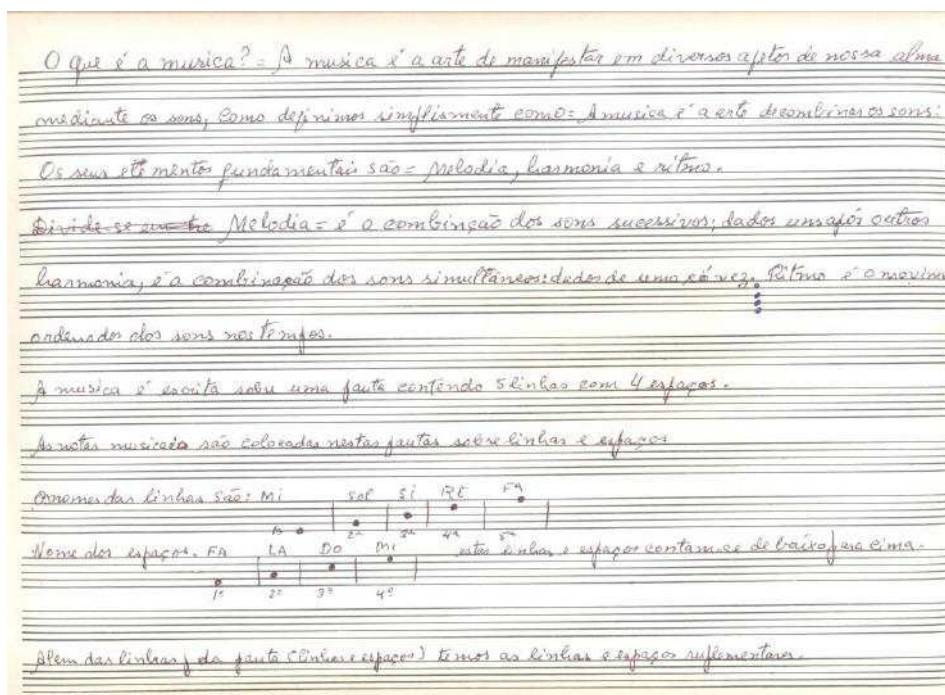 O que é a musica? = A musica é a arte de manifestar em diversos afetos de nossa alma
mediante os sons, Como definimos simplismente como = A musica é a arte de combinar os sons.
Os seus ele mentos fundamentais são = Melodia, harmonia e ritmo.
Divide-se em tre Melodia = é a combinção dos sons sucessivos; dados uns após outros
harmonia, é a combinação dos sons simultâneos: dados de uma só vez. Ritmo é o movim
ordenados dos sons nos tempos.
A musica é escrita sobre uma pauta contendo 5 linhas com 4 espaços.
As notas musicais são colocadas nestas pautas sobre linhas e espaços
Os nomes das linhas são: Mi Sol Si RÉ FA
1ª 2ª 3ª 4ª 5ª
Nome dos espaços. FA LA DO Mi estas linhas e espaços contam-se de baixo para cima.
1º 2º 3º 4º
Alem das linhas da pauta (linhas e espaços) temos as linhas e espaços suplementares.